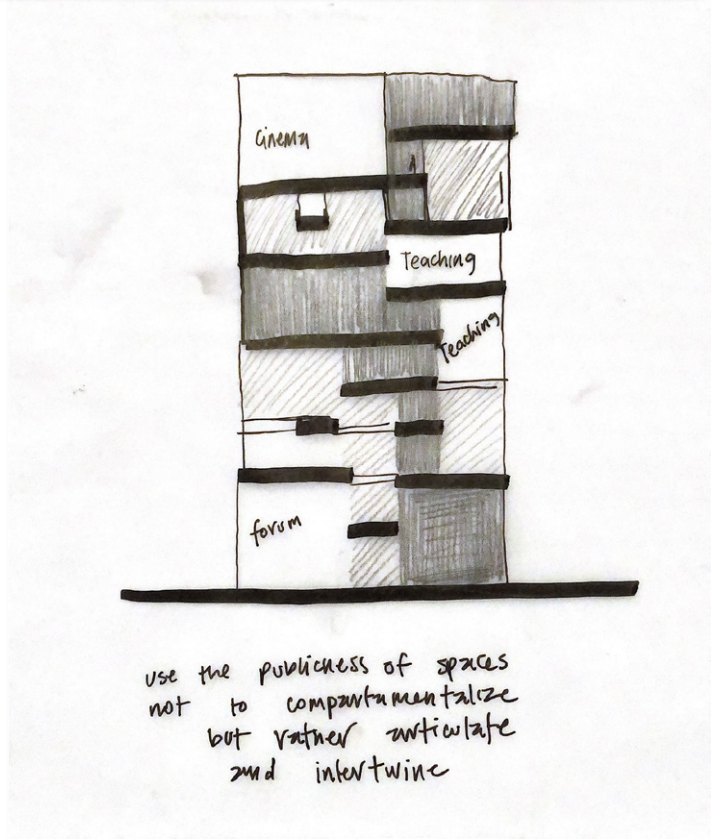 Cinema
Teaching
Teaching
forum
use the publicness of spaces
not to compartamentalize
but rather articulate
and intertwine